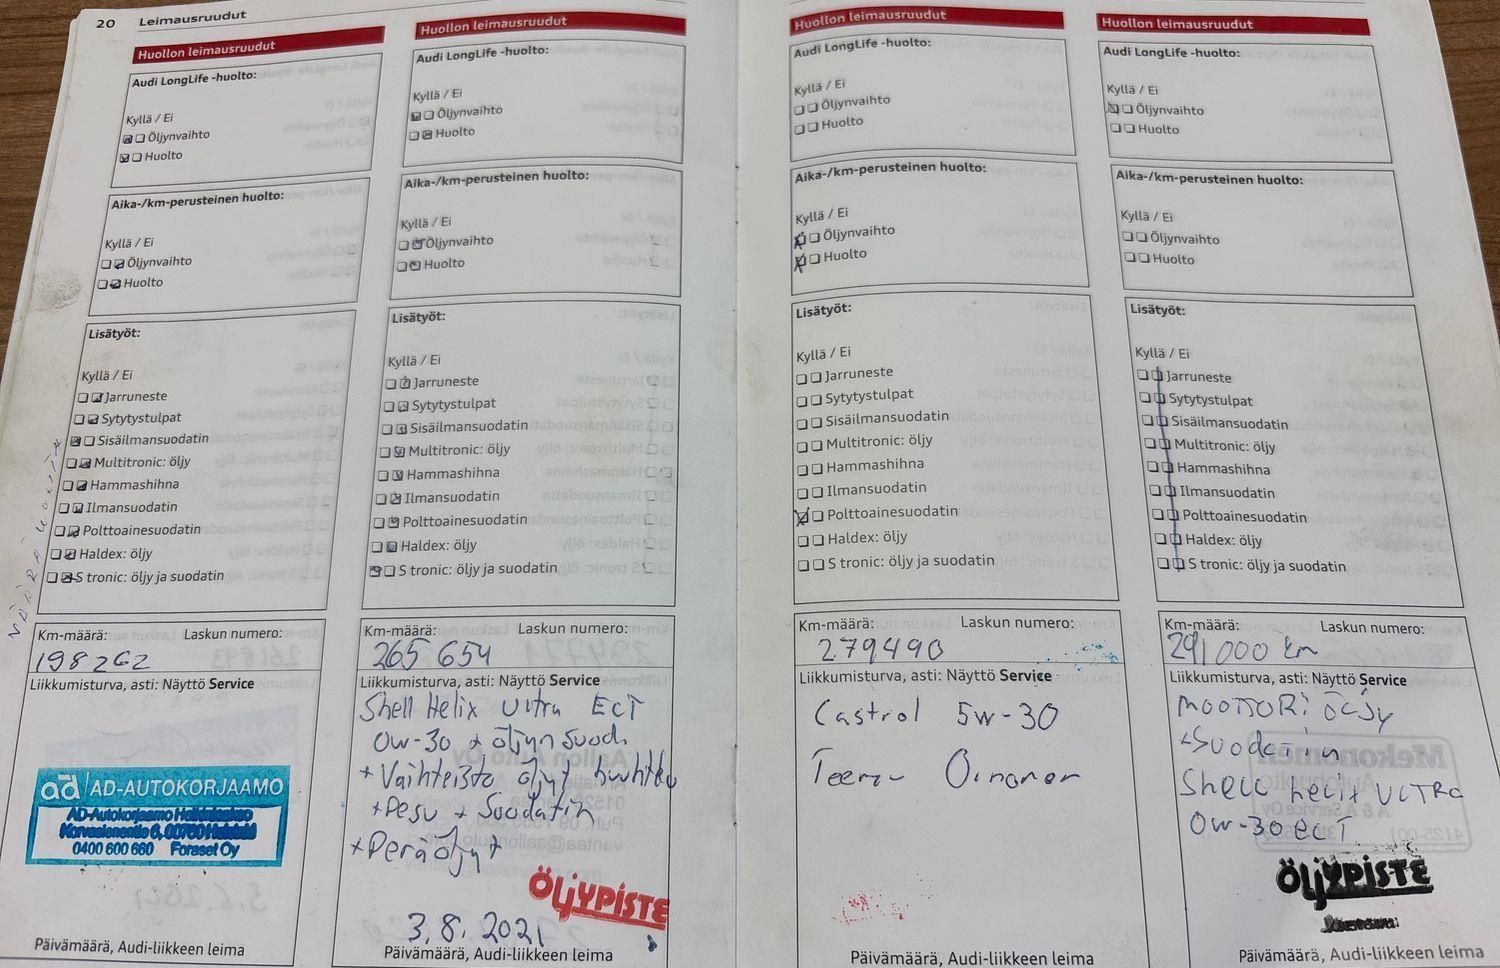 20 Leimausruudut
Huollon leimausruudut
Audi LongLife -huolto:
Kyllä / Ei
Öljynvaihto
Huolto
Aika-/km-perusteinen huolto:
Kyllä / Ei
Öljynvaihto
Huolto
Lisätyöt:
Kyllä / Ei
Jarruneste
Sytytystulpat
Sisäilmansuodatin
Multitronic: öljy
Hammashihna
Ilmansuodatin
Polttoainesuodatin
Haldex: öljy
S tronic: öljy ja suodatin
Km-määrä: Laskun numero:
198262
Liikkumisturva, asti: Näyttö Service
ad AD-AUTOKORJAAMO
0400 600 660 Foraset Oy
Päivämäärä, Audi-liikkeen leima
Huollon leimausruudut
Audi LongLife -huolto:
Kyllä / Ei
Öljynvaihto
Huolto
Aika-/km-perusteinen huolto:
Kyllä / Ei
Öljynvaihto
Huolto
Lisätyöt:
Kyllä / Ei
Jarruneste
Sytytystulpat
Sisäilmansuodatin
Multitronic: öljy
Hammashihna
Ilmansuodatin
Polttoainesuodatin
Haldex: öljy
S tronic: öljy ja suodatin
Km-määrä: Laskun numero:
265 654
Liikkumisturva, asti: Näyttö Service
Shell Helix Ultra ECT
0w-30 + öljyn Suod.
+ Vaihteisto öljyt huuhtelu
+ Pesu + Suodatin
+ Peräöljyt
ÖLJYPISTE
3.8.2021
Päivämäärä, Audi-liikkeen leima
Huollon leimausruudut
Audi LongLife -huolto:
Kyllä / Ei
Öljynvaihto
Huolto
Aika-/km-perusteinen huolto:
Kyllä / Ei
Öljynvaihto
Huolto
Lisätyöt:
Kyllä / Ei
Jarruneste
Sytytystulpat
Sisäilmansuodatin
Multitronic: öljy
Hammashihna
Ilmansuodatin
Polttoainesuodatin
Haldex: öljy
S tronic: öljy ja suodatin
Km-määrä: Laskun numero:
279490
Liikkumisturva, asti: Näyttö Service
Castrol 5w-30
Päivämäärä, Audi-liikkeen leima
Huollon leimausruudut
Audi LongLife -huolto:
Kyllä / Ei
Öljynvaihto
Huolto
Aika-/km-perusteinen huolto:
Kyllä / Ei
Öljynvaihto
Huolto
Lisätyöt:
Kyllä / Ei
Jarruneste
Sytytystulpat
Sisäilmansuodatin
Multitronic: öljy
Hammashihna
Ilmansuodatin
Polttoainesuodatin
Haldex: öljy
S tronic: öljy ja suodatin
Km-määrä: Laskun numero:
291,000 km
Liikkumisturva, asti: Näyttö Service
MOOTTORI ÖLJY
+Suodatin
Shell helix ULTRA
0w-30 ECT
ÖLJYPISTE
Päivämäärä, Audi-liikkeen leima